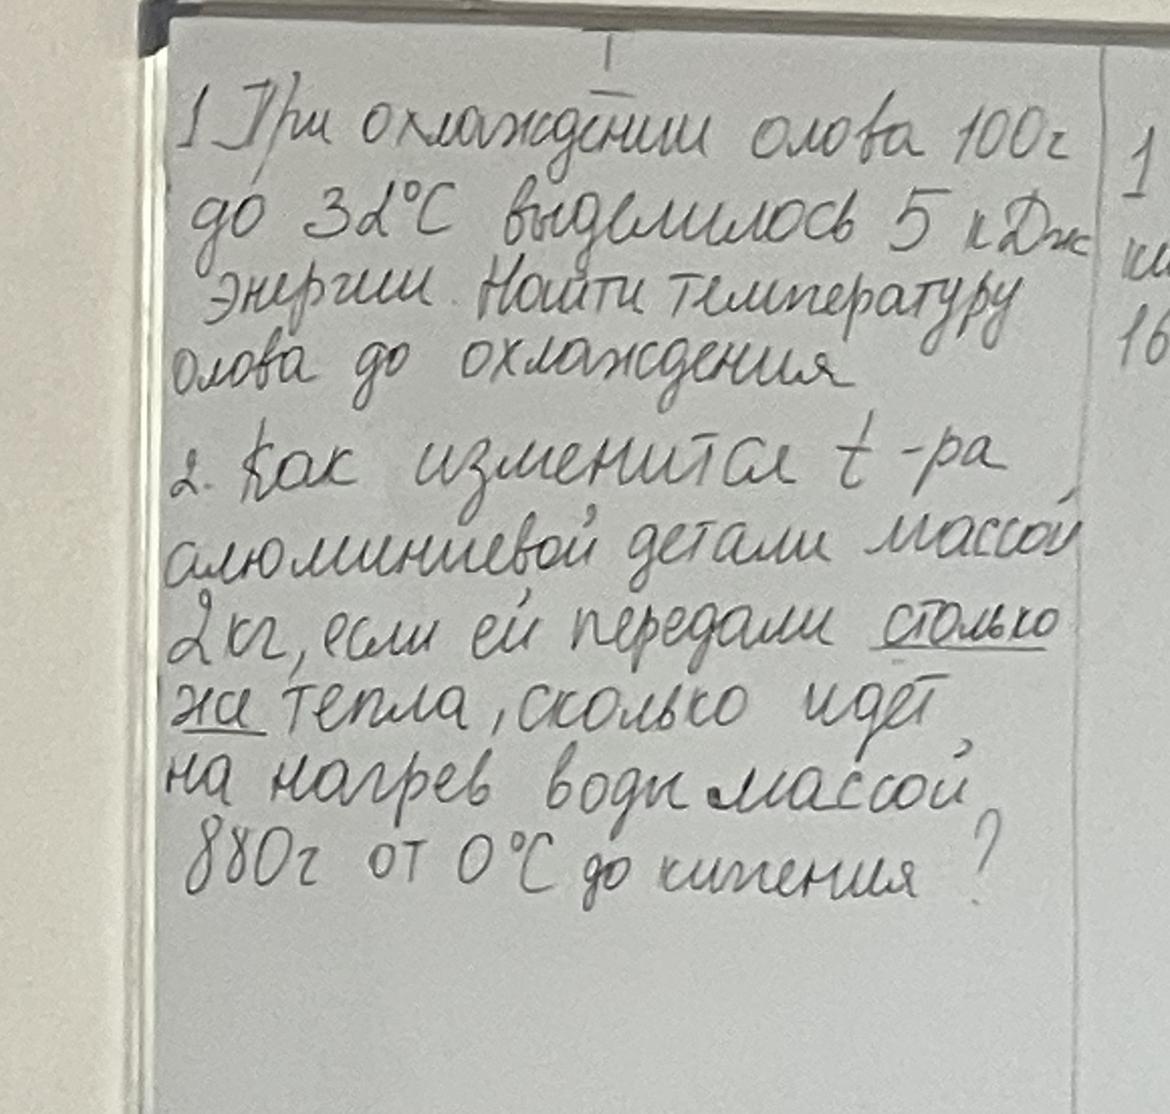 I
1 При охлаждении олова 100г
до 32°С выделилось 5 кДж
энергии. Найти температуру
олова до охлаждения
2. Как изменится t-ра
алюминиевой детали массой
2кг, если ей передали столько
же тепла, сколько идёт
на нагрев воды массой
880г от 0°С до кипения ?
1
16